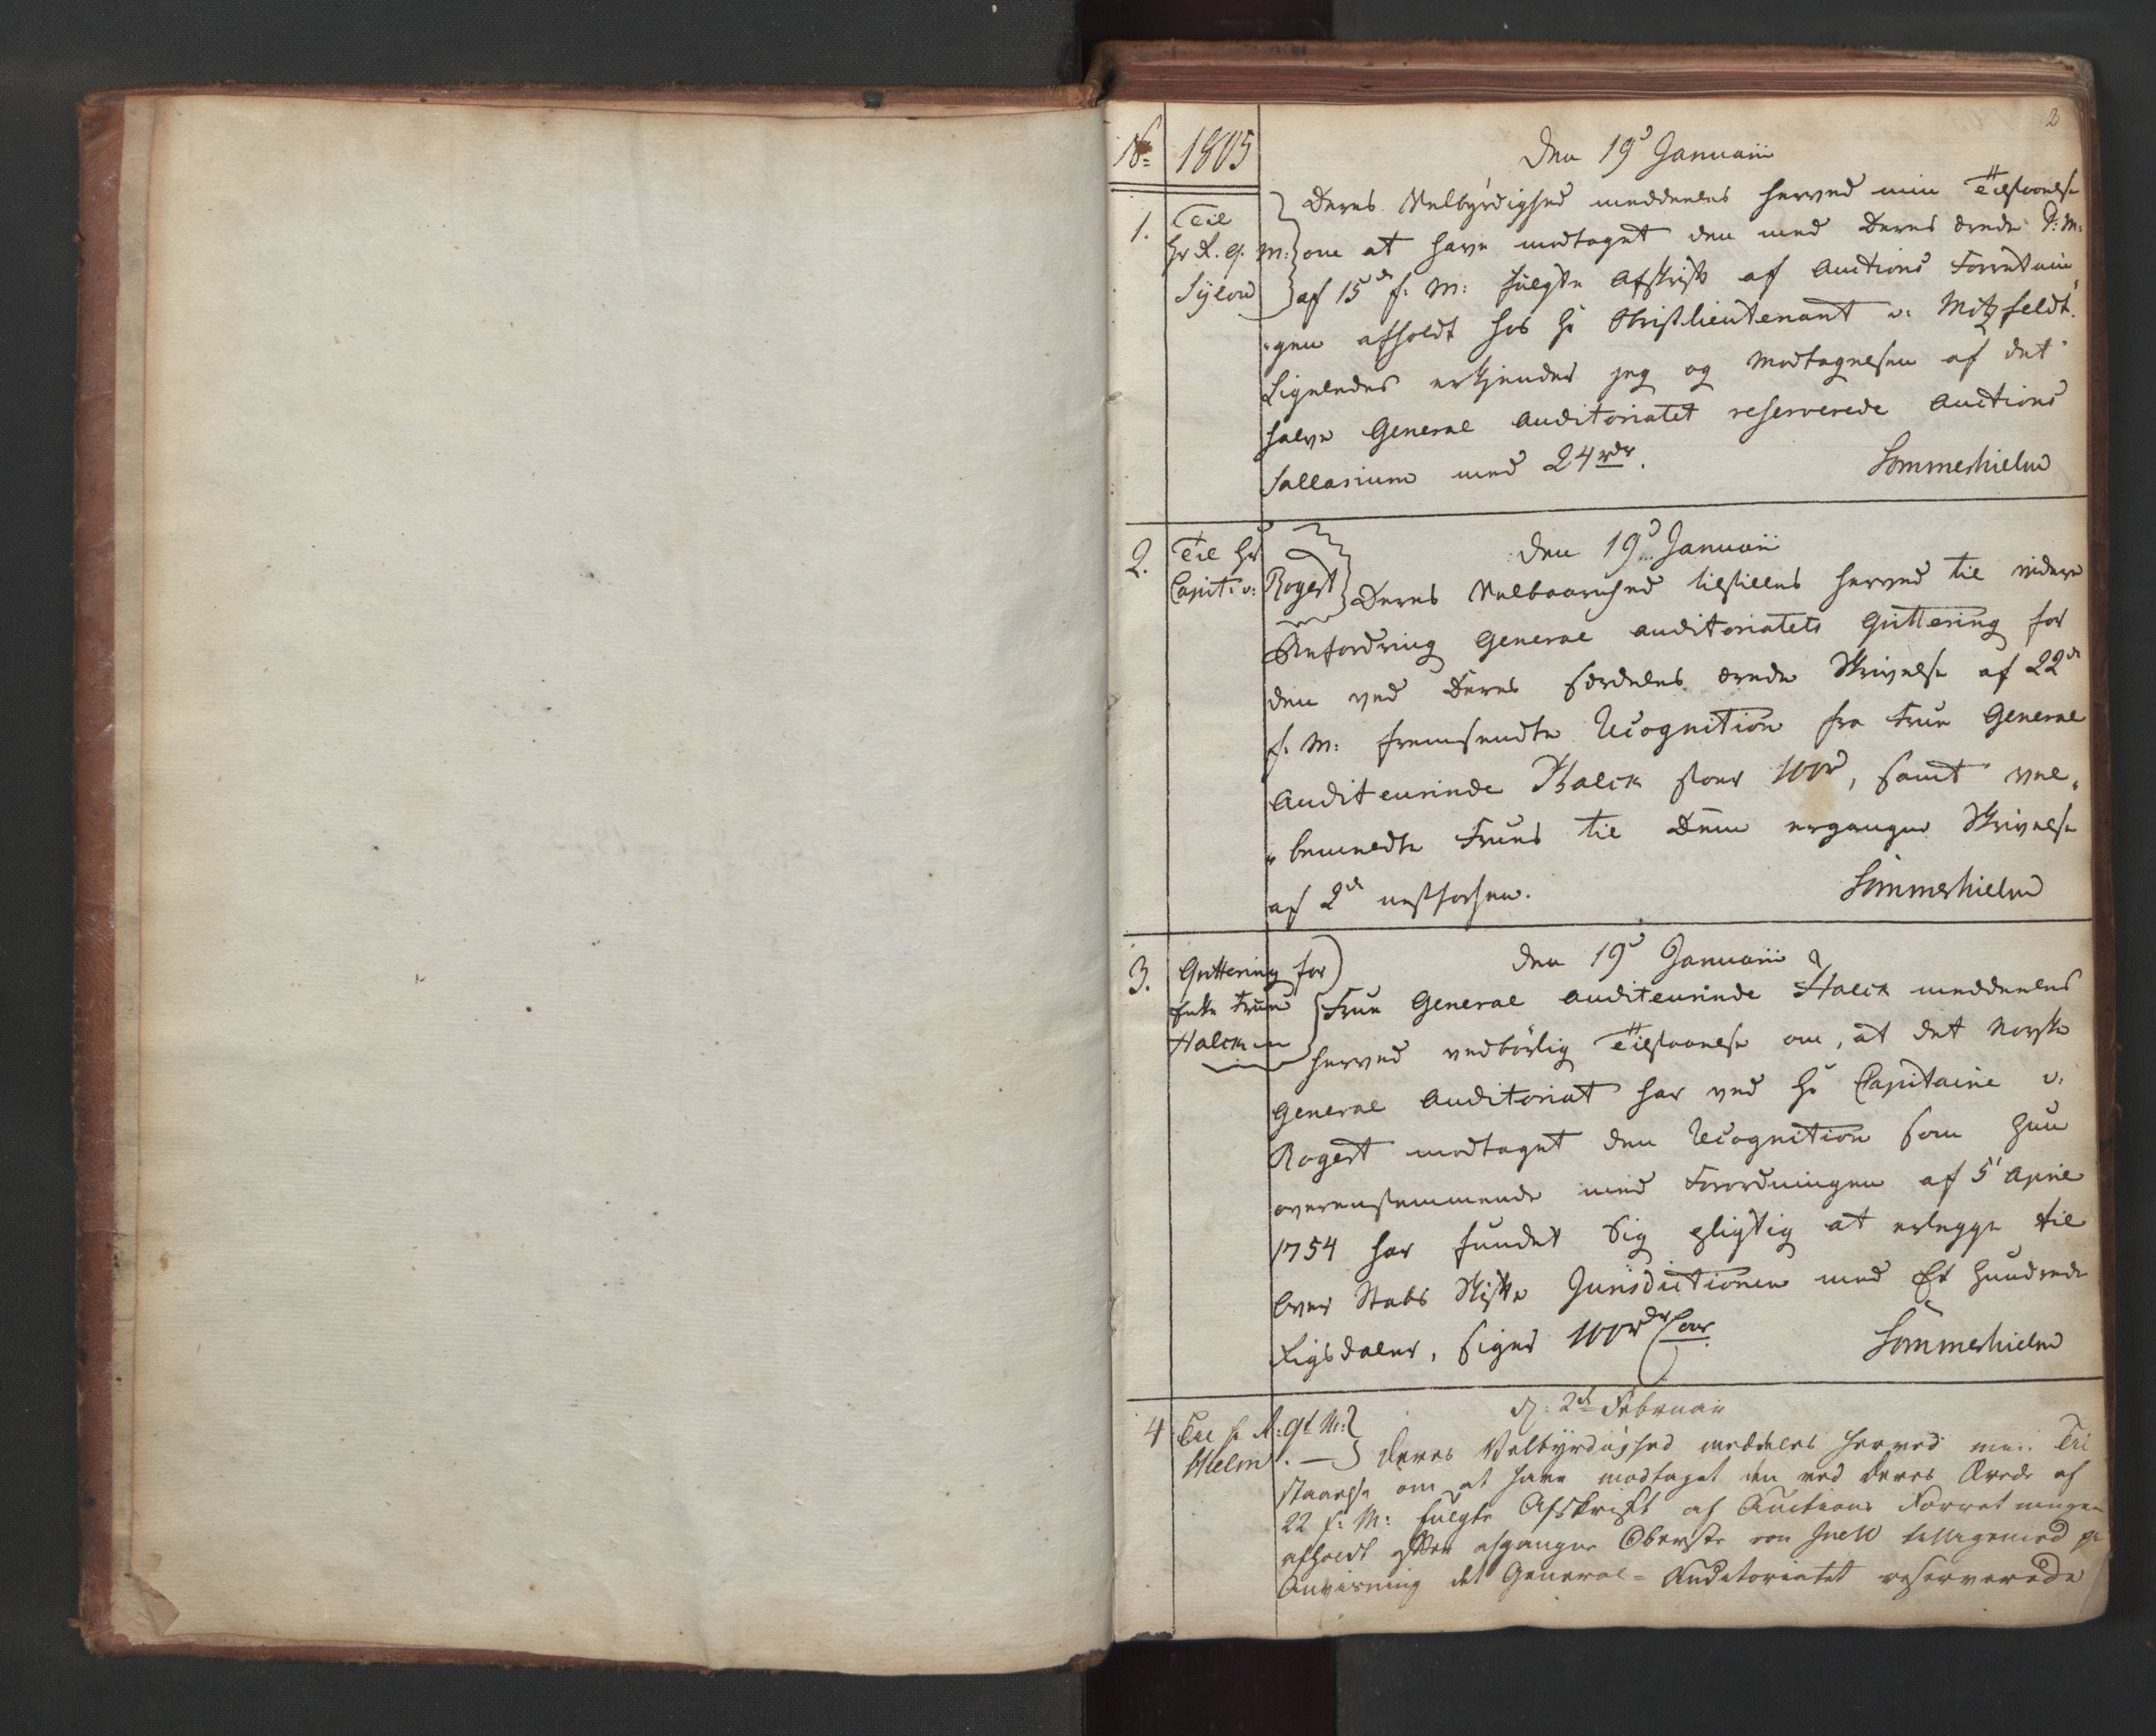 2
No 1805
Den 19d Januarii
1. Til Hr R. Q. M: Sylow
Deres Velbyrdighed meddeeles herved min Tilstaaelse
om at have modtaget den med Deres ærede P: M:
af 15de f: M: fulgte Afskrift af Auctions Forretnin„
„gen afholdt hos Hr Obristlieutenant v: Motzfeldt.
Ligeledes erkjender jeg og Modtagelsen af det
halve General Auditoriatet reserverede Auctions
Sallarium med 24 rdr.
Sommerhielm
2. Til Hr Capit: v: Rogert
Den 19d Januarii
Deres Velbaarenhed tilstilles herved til videre
Anfordring General Auditoriatets Qvittering for
den ved Deres særdeles ærede Skrivelse af 22de
f. M: fremsendte Recognition fra Frue General
Auditeurinde Halck stor 100 r, samt vel„
„bemeldte Frues til Dem ergangne Skrivelse
af 2de nestforhen.
Sommerhielm
3. Qvittering for Enke Frue Halck
Den 19d Januarii
Frue General Auditeurinde Halck meddeeles
herved vedbørlig Tilstaaelse om, at det Norske
General Auditoriat har ved Hr Capitaine v.
Rogert modtaget den Recognition som Hun
overensstemmende med Forordningen af 5 April
1754 har fundet Sig pligtig at erlegge til
Over Stabs Skifte Jurisdictionen med Et Hundrede
Rigsdaler, siger 100 rdr
Sommerhielm
4 Til Hr R: Qt M: Hielm
d: 2de Februar
Deres Velbyrdighed meddeles herved min Til
staaelse om at have modtaget den med Deres Ærede af
22 f: M: fulgte Afskrift af Auctions Forretningen
afholdt efter afgangne Oberste von
Anvisning det General-Auditoriatet reserverede